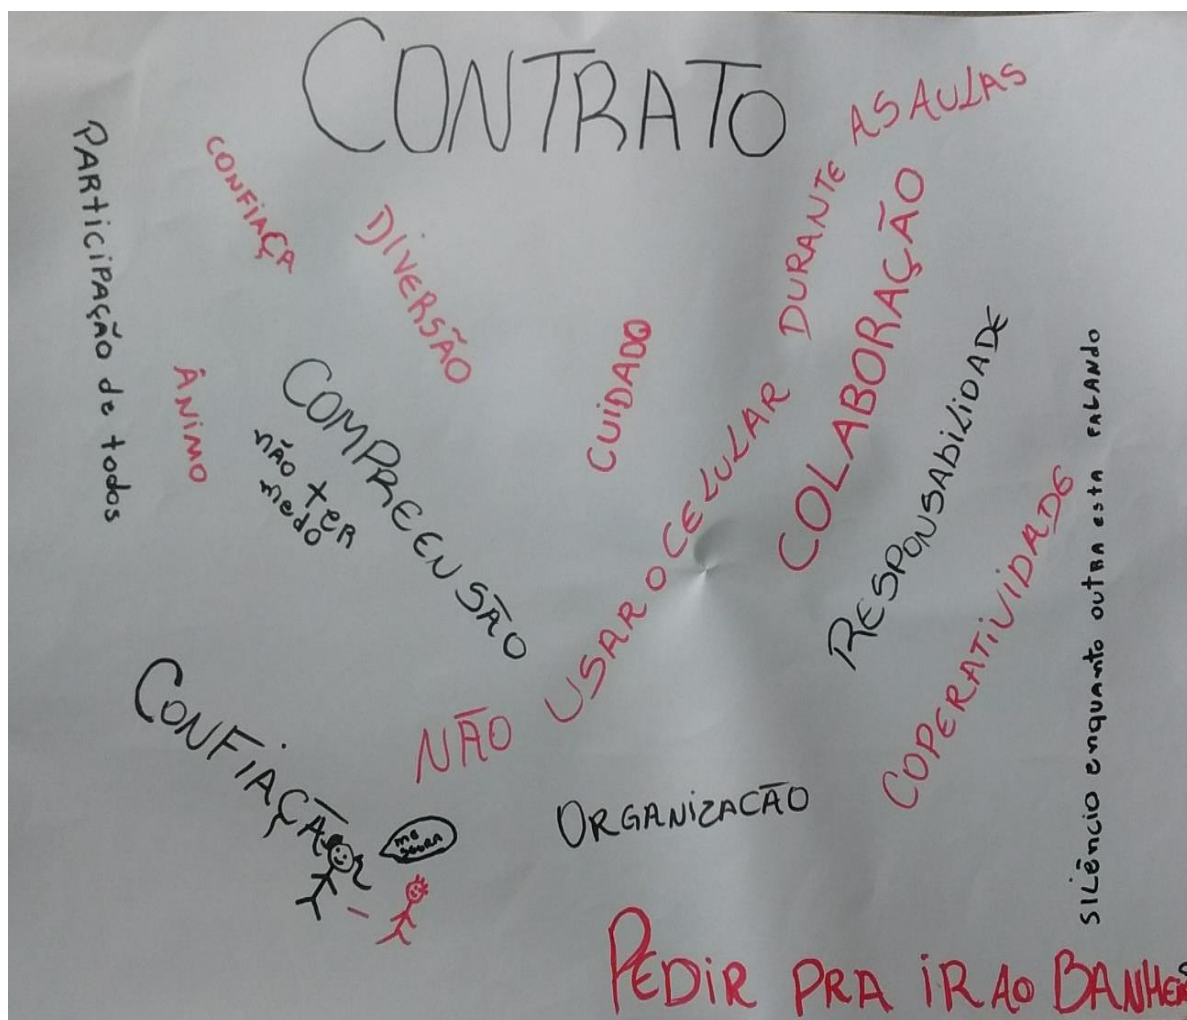 CONTRATO
PARTICIPAÇÃO de todos
CONFIAÇA
DIVERSÃO
ÂNIMO
COMPREENSÃO
não ter
medo
CUIDADO
NÃO USAR O CELULAR DURANTE AS AULAS
COLABORAÇÃO
RESPONSABILIDADE
COPERATIVIDADE
SILÊNCIO enquanto outra esta FALANDO
CONFIAÇÃ
me
ORGANIZACÃO
PEDIR PRA IR AO BANHEIRO